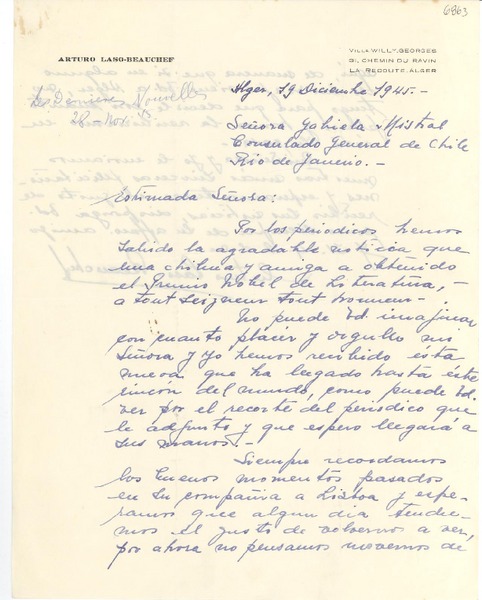 6863
ARTURO LASO-BEAUCHEF
VILLA WILLY, GEORGES
31, CHEMIN DU RAVIN
LA REDOUTE, ALGER
Les Dernières Nouvelles
28-Nov. 45
Alger, 19 Diciembre 1945.-
Señora Gabriela Mistral
Consulado General de Chile
Rio de Janeiro.-
Estimada Señora:
Por los periodicos hemos
sabido la agradable noticia que
una chilena y amiga a obtenido
el Premio Nobel de Literatura,-
a tout seigneur tout honneur-.
No puede Ud. imaginar
con cuanto placer y orgullo mi
Señora y yo hemos recibido ésta
nueva que ha llegado hasta éste
rincón del mundo, como puede Ud.
ver por el recorte del periodico que
le adjunto y que espero llegará a
sus manos.-
Siempre recordamos
los buenos momentos pasados
en su compañia a Lisboa y espe-
ramos que algun dia tendre-
mos el gusto de volvernos a ver,
por ahora no pensamos movernos de